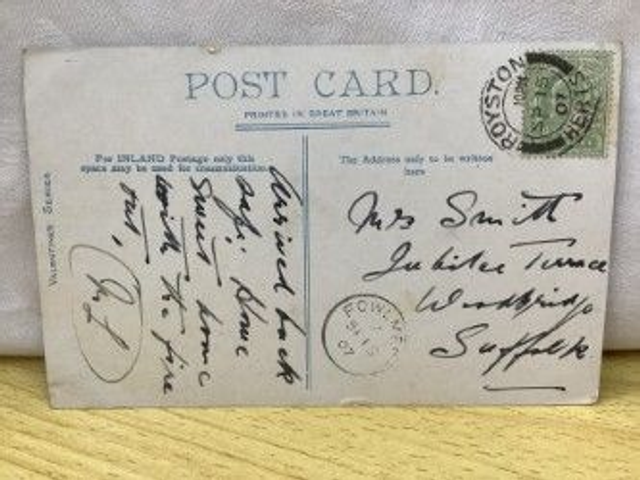 POST CARD.
PRINTED IN GREAT BRITAIN
For INLAND Postage only this
space may be used for communication.
The Address only to be written
here
VALENTINES SERIES
Arrived back
safe. Home
sweet home
with the fire
out.
ROYSTON
HERTS
SP 15
07
Mrs Smith
Jubilee Terrace
Woodbridge
Suffolk
FOWLMERE
SP 15
07